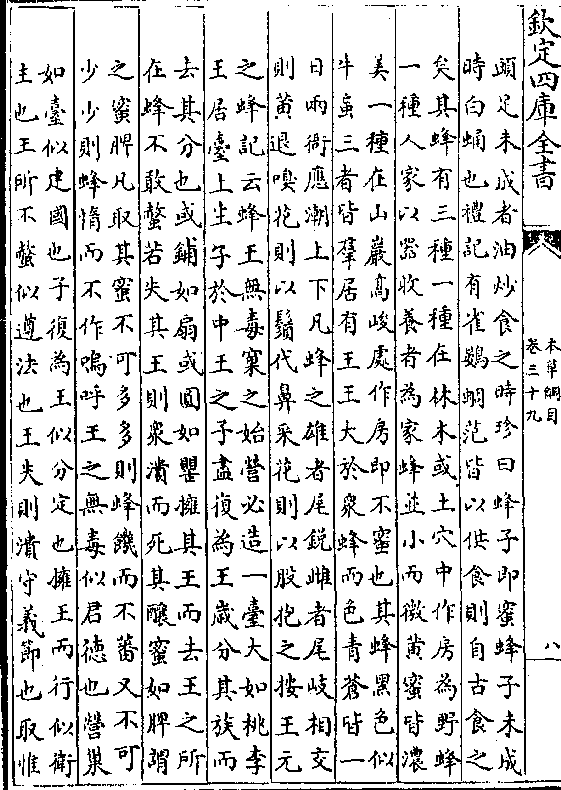 欽定四庫全書
本草綱目
卷三十九
八
頭足未成者油炒食之時珍曰蜂子即蜜蜂子未成
時白蛹也禮記有雀鷃蜩范皆以供食則自古食之
矣其蜂有三種一種在林木或土穴中作房為野蜂
一種人家以器收養者為家蜂並小而微黃蜜皆濃
美一種在山巖高峻處作房即不蜜也其蜂黑色似
牛䖟三者皆羣居有王王大於衆蜂而色青蒼皆一
日兩衙應潮上下凡蜂之雄者尾銳雌者尾岐相交
則黃退嗅花則以鬚代鼻采花則以股抱之按王元
之蜂記云蜂王無毒窠之始營必造一臺大如桃李
王居臺上生子於中王之子盡復為王歲分其族而
去其分也或鋪如扇或圓如罌擁其王而去王之所
在蜂不敢螫若失其王則衆潰而死其釀蜜如脾謂
之蜜脾凡取其蜜不可多多則蜂饑而不蕃又不可
少少則蜂惰而不作嗚呼王之無毒似君德也營巢
如臺似建國也子復為王似分定也擁王而行似衛
主也王所不螫似遵法也王失則潰守義節也取惟